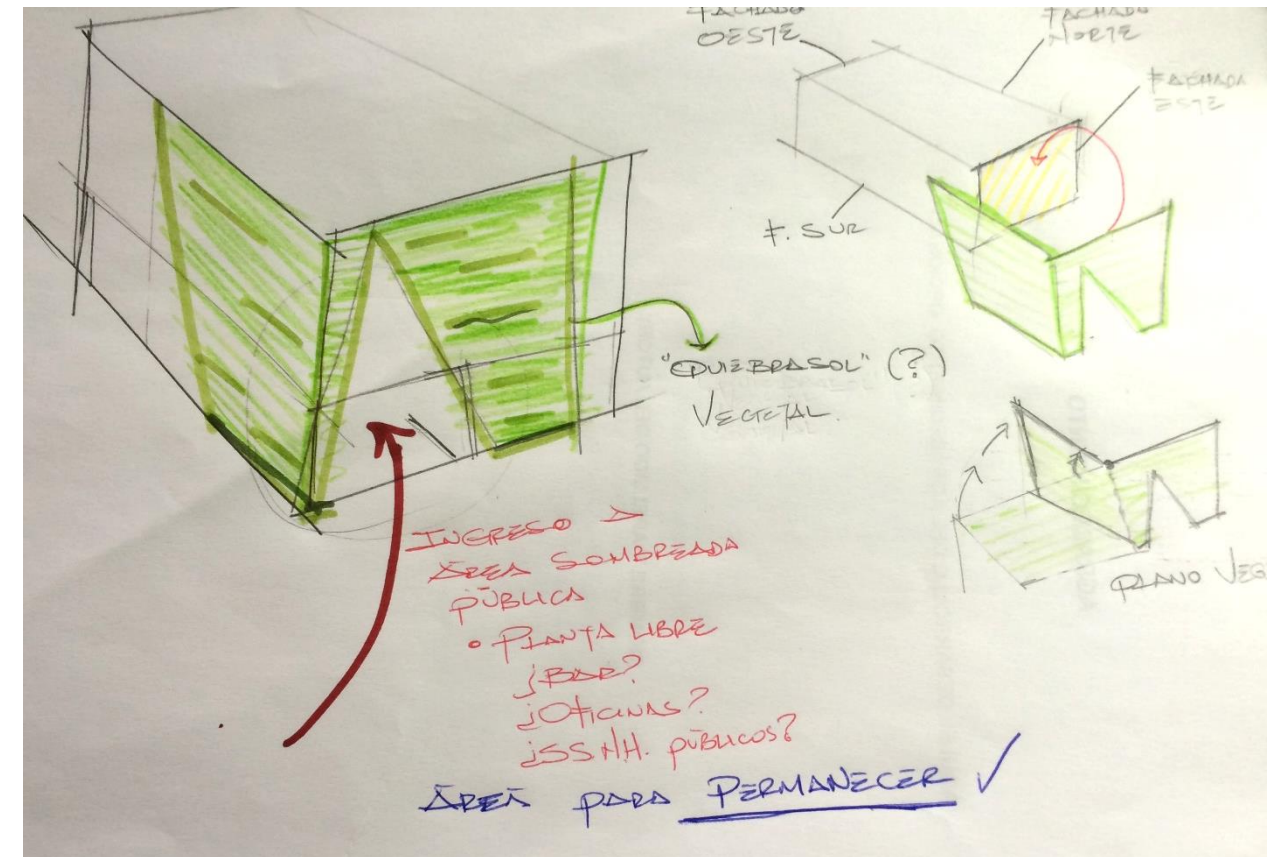 FACHADO
OESTE
FACHADO
NORTE
FACHADA
ESTE
F. SUR
"QUIEBRASOL" (?)
VEGETAL.
PLANO VEG
INGRESO A
ÁREA SOMBREADA
PÚBLICA
• PLANTA LIBRE
¿BAR?
¿OFICINAS?
¿SS.HH. PÚBLICOS?
ÁREA PARA PERMANECER ✓